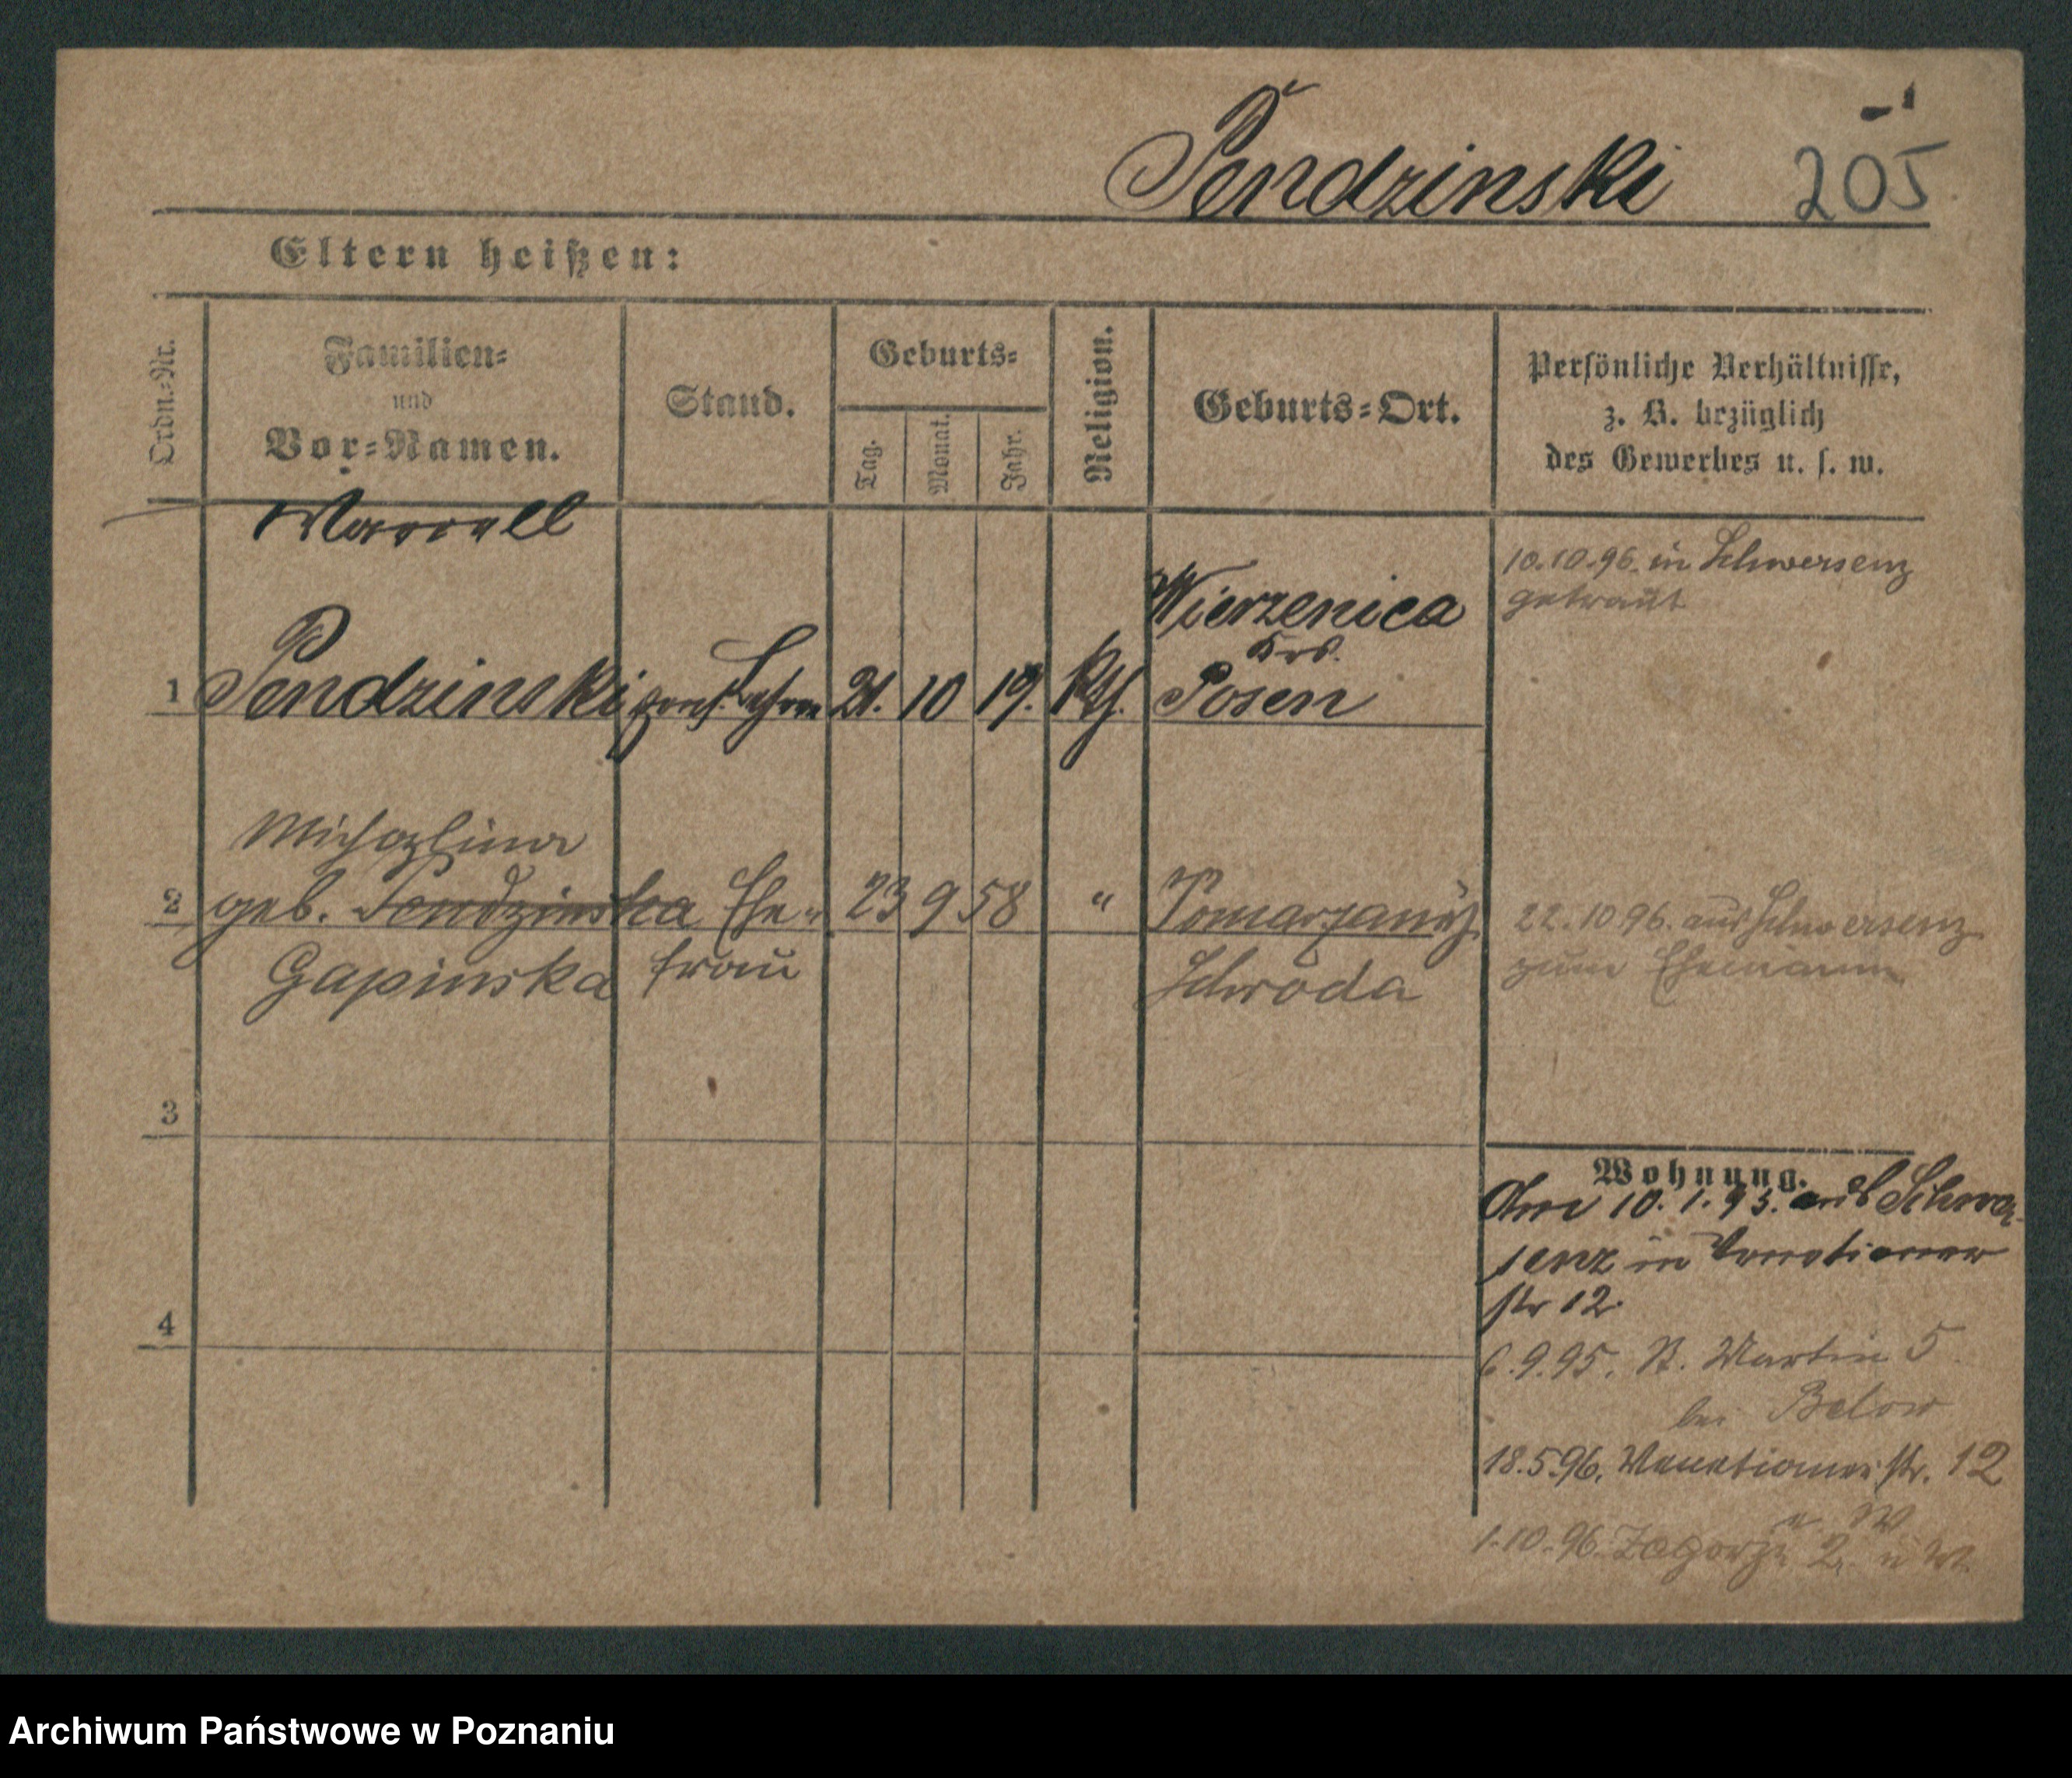 Pendzinski 205
Eltern heißen:
Ordn.=Nr.
Familien=
und
Vor=Namen.
Stand.
Geburts=
Tag.
Monat.
Jahr.
Religion.
Geburts=Ort.
Persönliche Verhältnisse,
z. B. bezüglich
des Gewerbes u. s. w.
10.10.96. in Schwersenz
getraut
Wierzenica
Krs.
1 Pendzinski 21. 10 19. kth. Posen
Michalina
2 geb. Pendzinska Ehe= 23 9 58 " 
Gapinska frau Schroda
22.10 96. aus Schwersenz
zum Ehemann
3
4
Wohnung.
10. 1. 95. aus Schwer
senz in Venetianer
str 12.
6.9.95. St. Martin 5
bei Below
18.5.96. Venetianerstr. 12
1.10.96. Zagorze 2.
Archiwum Państwowe w Poznaniu